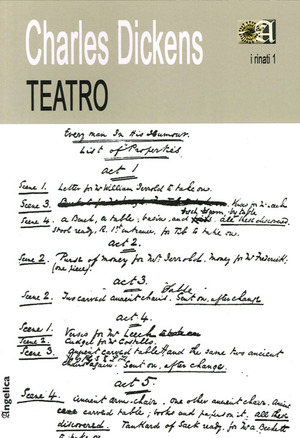 Charles Dickens
TEATRO
A
i rinati 1
Every man In His Humour.
List of Properties
act 1
Scene 1. Letter for Mr William Jerrold to take on.
Scene 3.
Scene 4. a Bench, a table; all these discovered.
stool ready, R. 1st entrance, for to take on.
act 2.
Scene 2. Purse of money for Mr Jerrold. Money for Mr Frederick
(one piece).
act 3.
Table
Scene 2. Two carved ancient chairs. Sent on, after change
act 4.
Scene 1. Verses for Mr Leech
Scene 2. Cudgel for Mr Costello.
Scene 3. Ancient carved table, and the same two ancient
chairs again. Sent on, after change
act 5.
Scene 4. Ancient arm-chair. One other ancient chair.
carved table; books and papers on it. all these
discovered. Tankard of Sack ready, for Mr a Beckett
to take on.
Angelica